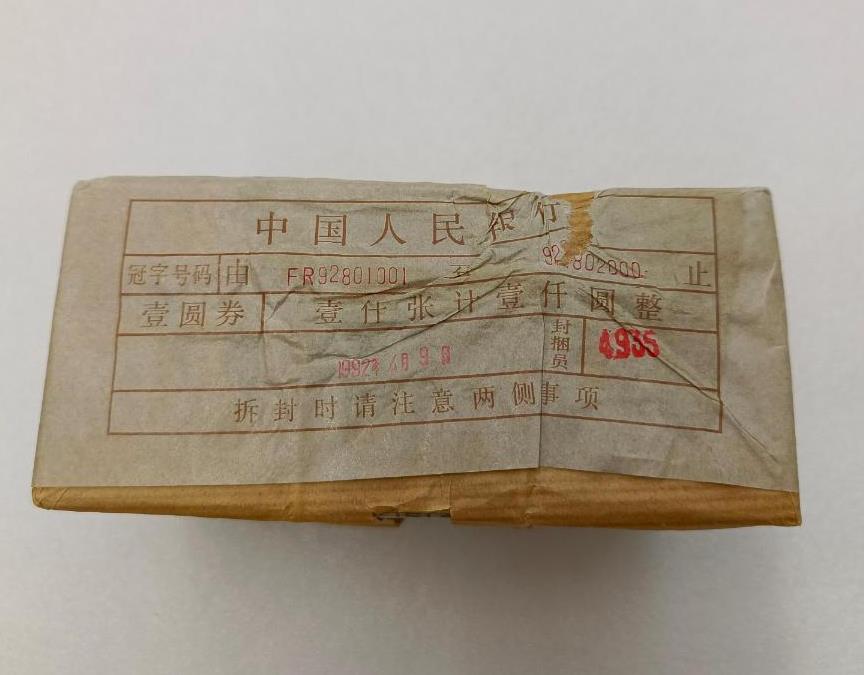 中国人民银行
冠字号码 由 FR92801001 至 92802000 止
壹圆券 壹仟张计壹仟圆整
1992年 4月 9日 封捆员 4935
拆封时请注意两侧事项